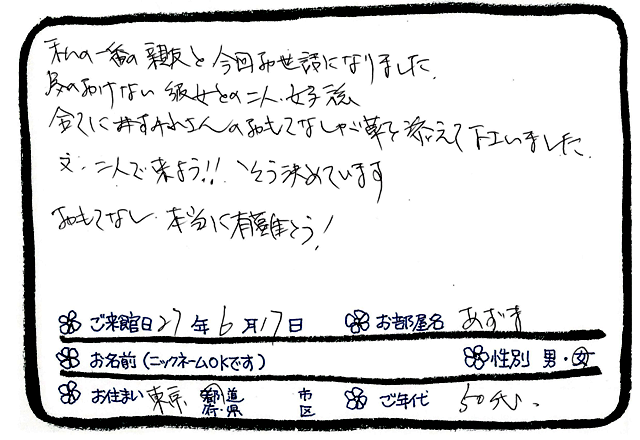 私の一番の親友と今回お世話になりました。
気のおけない彼女との二人女子旅
全てに さんのおもてなしが華を添えて下さいました。
又、二人で来よう!! そう決めています
おもてなし 本当に有難とう!
ご来館日27年6月17日 お部屋名 あずま
お名前(ニックネームOKです) 性別 男・女
お住まい 東京 都道府・県 市区 ご年代 50代、